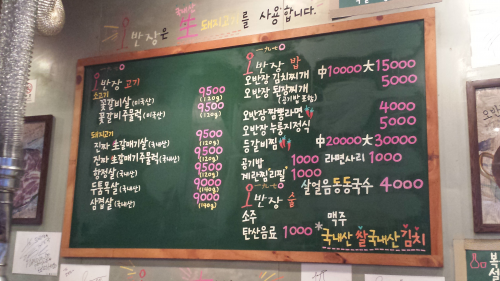 오반장은 국내산 生 돼지고기를 사용합니다.
오반장 고기
소고기
꽃갈비살(미국산) 9500 (120g)
꽃갈비주물럭(미국산) 9500 (120g)
돼지고기
진짜 초갈매기살(국내산) 9500 (120g)
진짜 초갈매기주물럭(국내산) 9500 (120g)
항정살(국내산) 9500 (120g)
두툼목살(국내산) 9000 (140g)
삼겹살(국내산) 9000 (140g)
오반장 밥
오반장 김치찌개 中10000 大15000
오반장 된장찌개 5000
(공기밥 포함)
오반장 짬뽕라면 4000
오반장 누룽지정식 5000
등갈비찜 中20000 大30000
공기밥 1000 라면사리 1000
계란찜리필 1000
살얼음동동국수 4000
오반장 술
소주 맥주
탄산음료 1000
*국내산 쌀 국내산 김치